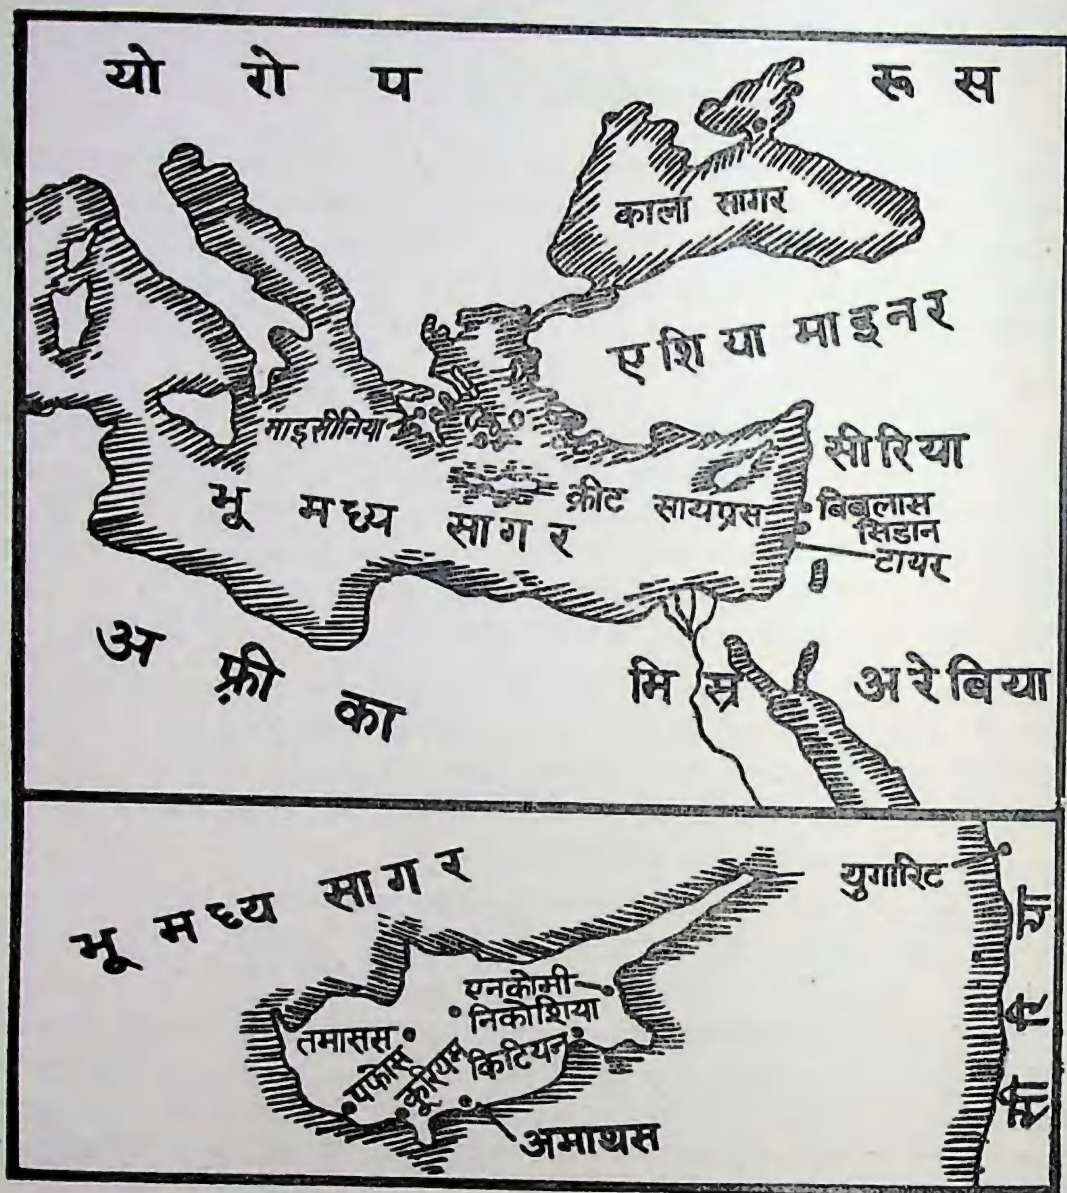 यो रो प
रू स
काला सागर
एशिया माइनर
माइसीनिया
सीरिया
भू मध्य सागर
क्रीट
सायप्रस
बिबलास
सिडान
टायर
अफ़्रीका
मिस्र
अरेबिया
भू मध्य सागर
युगारिट
सीरिया
एनकोमी
निकोशिया
तमासस
पफोस
कुरियम
किटियन
अमाथस